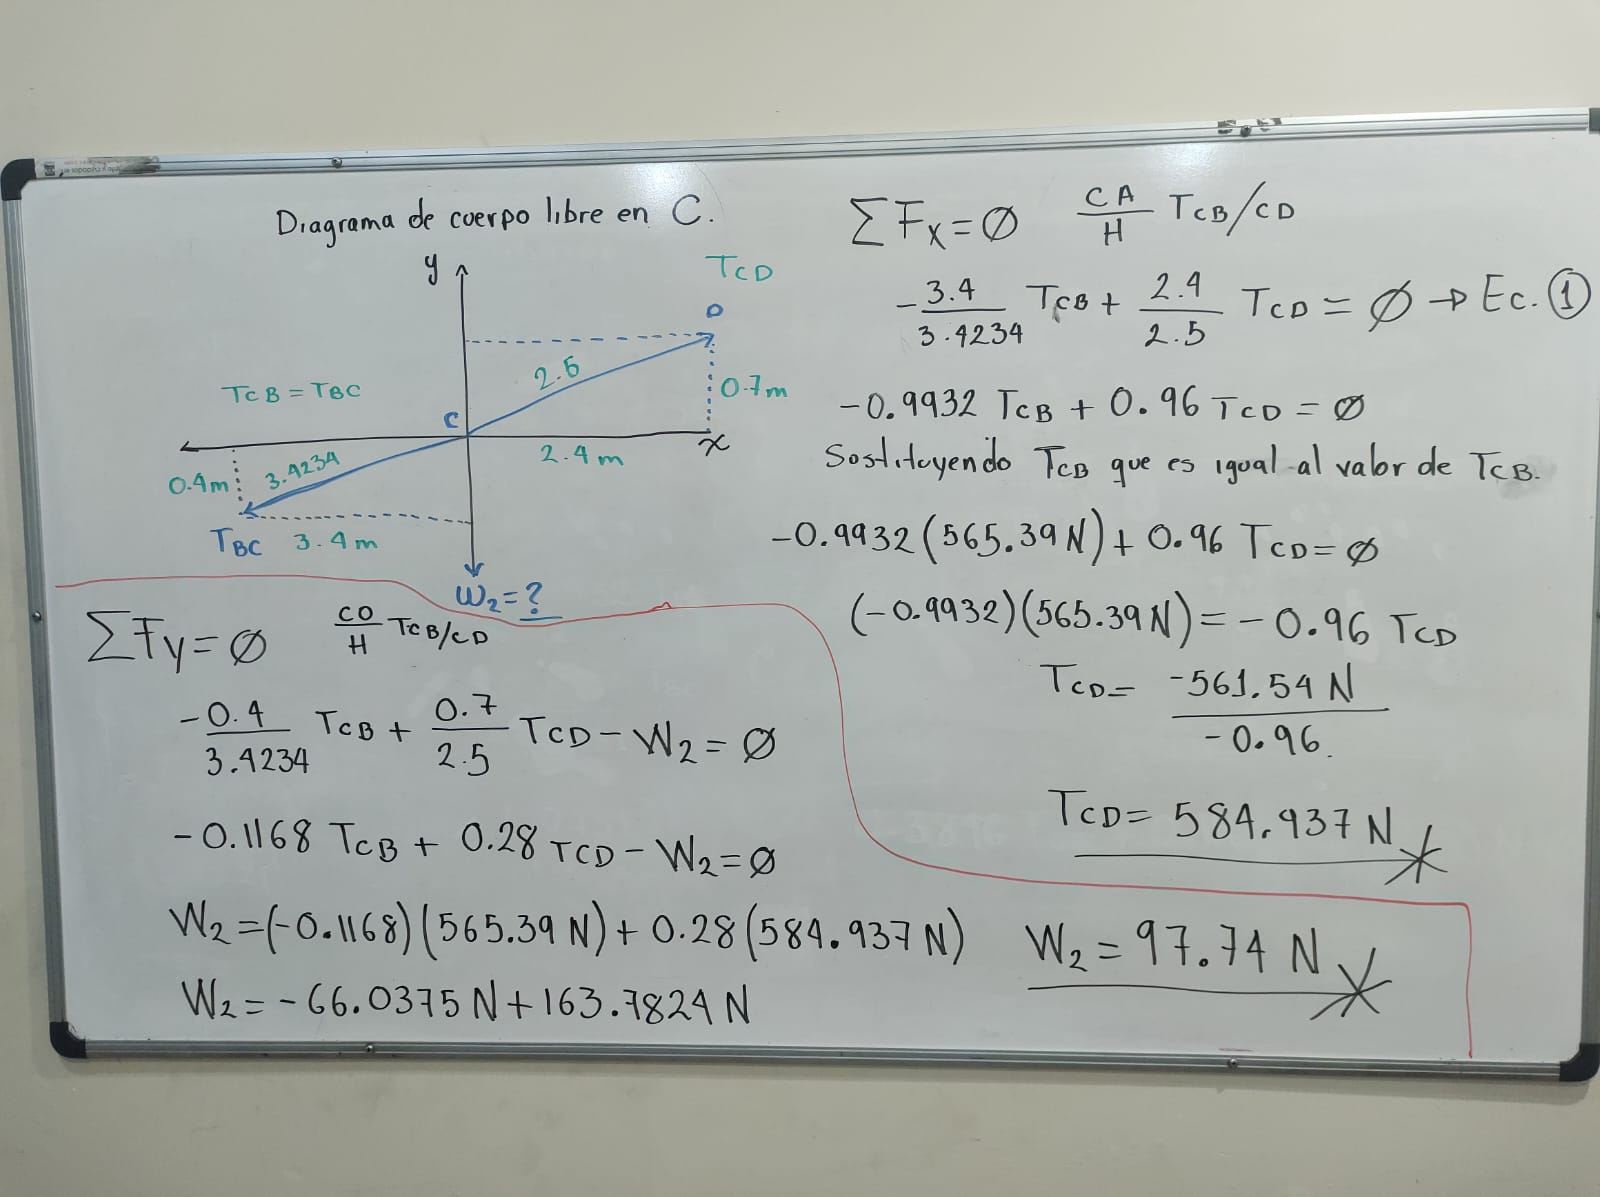 Diagrama de cuerpo libre en C.
y
TCD
D
2.5
0.7m
TCB = TBC
C
x
2.4 m
0.4m
3.4234
TBC 3.4 m
W₂=?
ΣFx=Ø CA/H TCB/CD
-3.4/3.4234 TCB + 2.4/2.5 TCD = Ø → Ec. ①
-0.9932 TCB + 0.96 TCD = Ø
Sostituyendo TCB que es igual al valor de TCB.
-0.9932(565.39N)+ 0.96 TCD=Ø
(-0.9932)(565.39N)=-0.96 TCD
TCD= -561.54 N/-0.96.
TCD= 584.937 N
ΣFy=Ø CO/H TCB/CD
-0.4/3.4234 TCB + 0.7/2.5 TCD-W₂=Ø
-0.1168 TCB + 0.28 TCD-W₂=Ø
W₂=(-0.1168)(565.39 N)+ 0.28(584.937 N)
W₂=-66.0375 N+163.7824 N
W₂=97.74 N